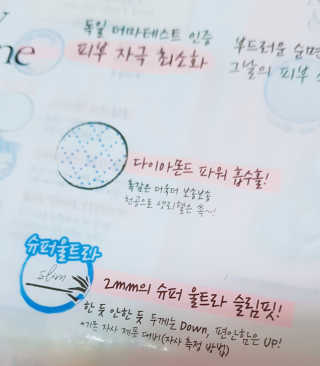 ne
독일 더마테스트 인증
피부 자극 최소화
부드러운 순면
그날의 피부
다이아몬드 파워 흡수홀!
촉감은 더욱더 보송보송
천공으로 생리혈은 쏙~!
슈퍼울트라
slim
2mm의 슈퍼 울트라 슬림핏!
한 듯 안한 듯 두께는 Down, 편안함은 UP!
*기존 자사 제품 대비(자사 측정 방법)